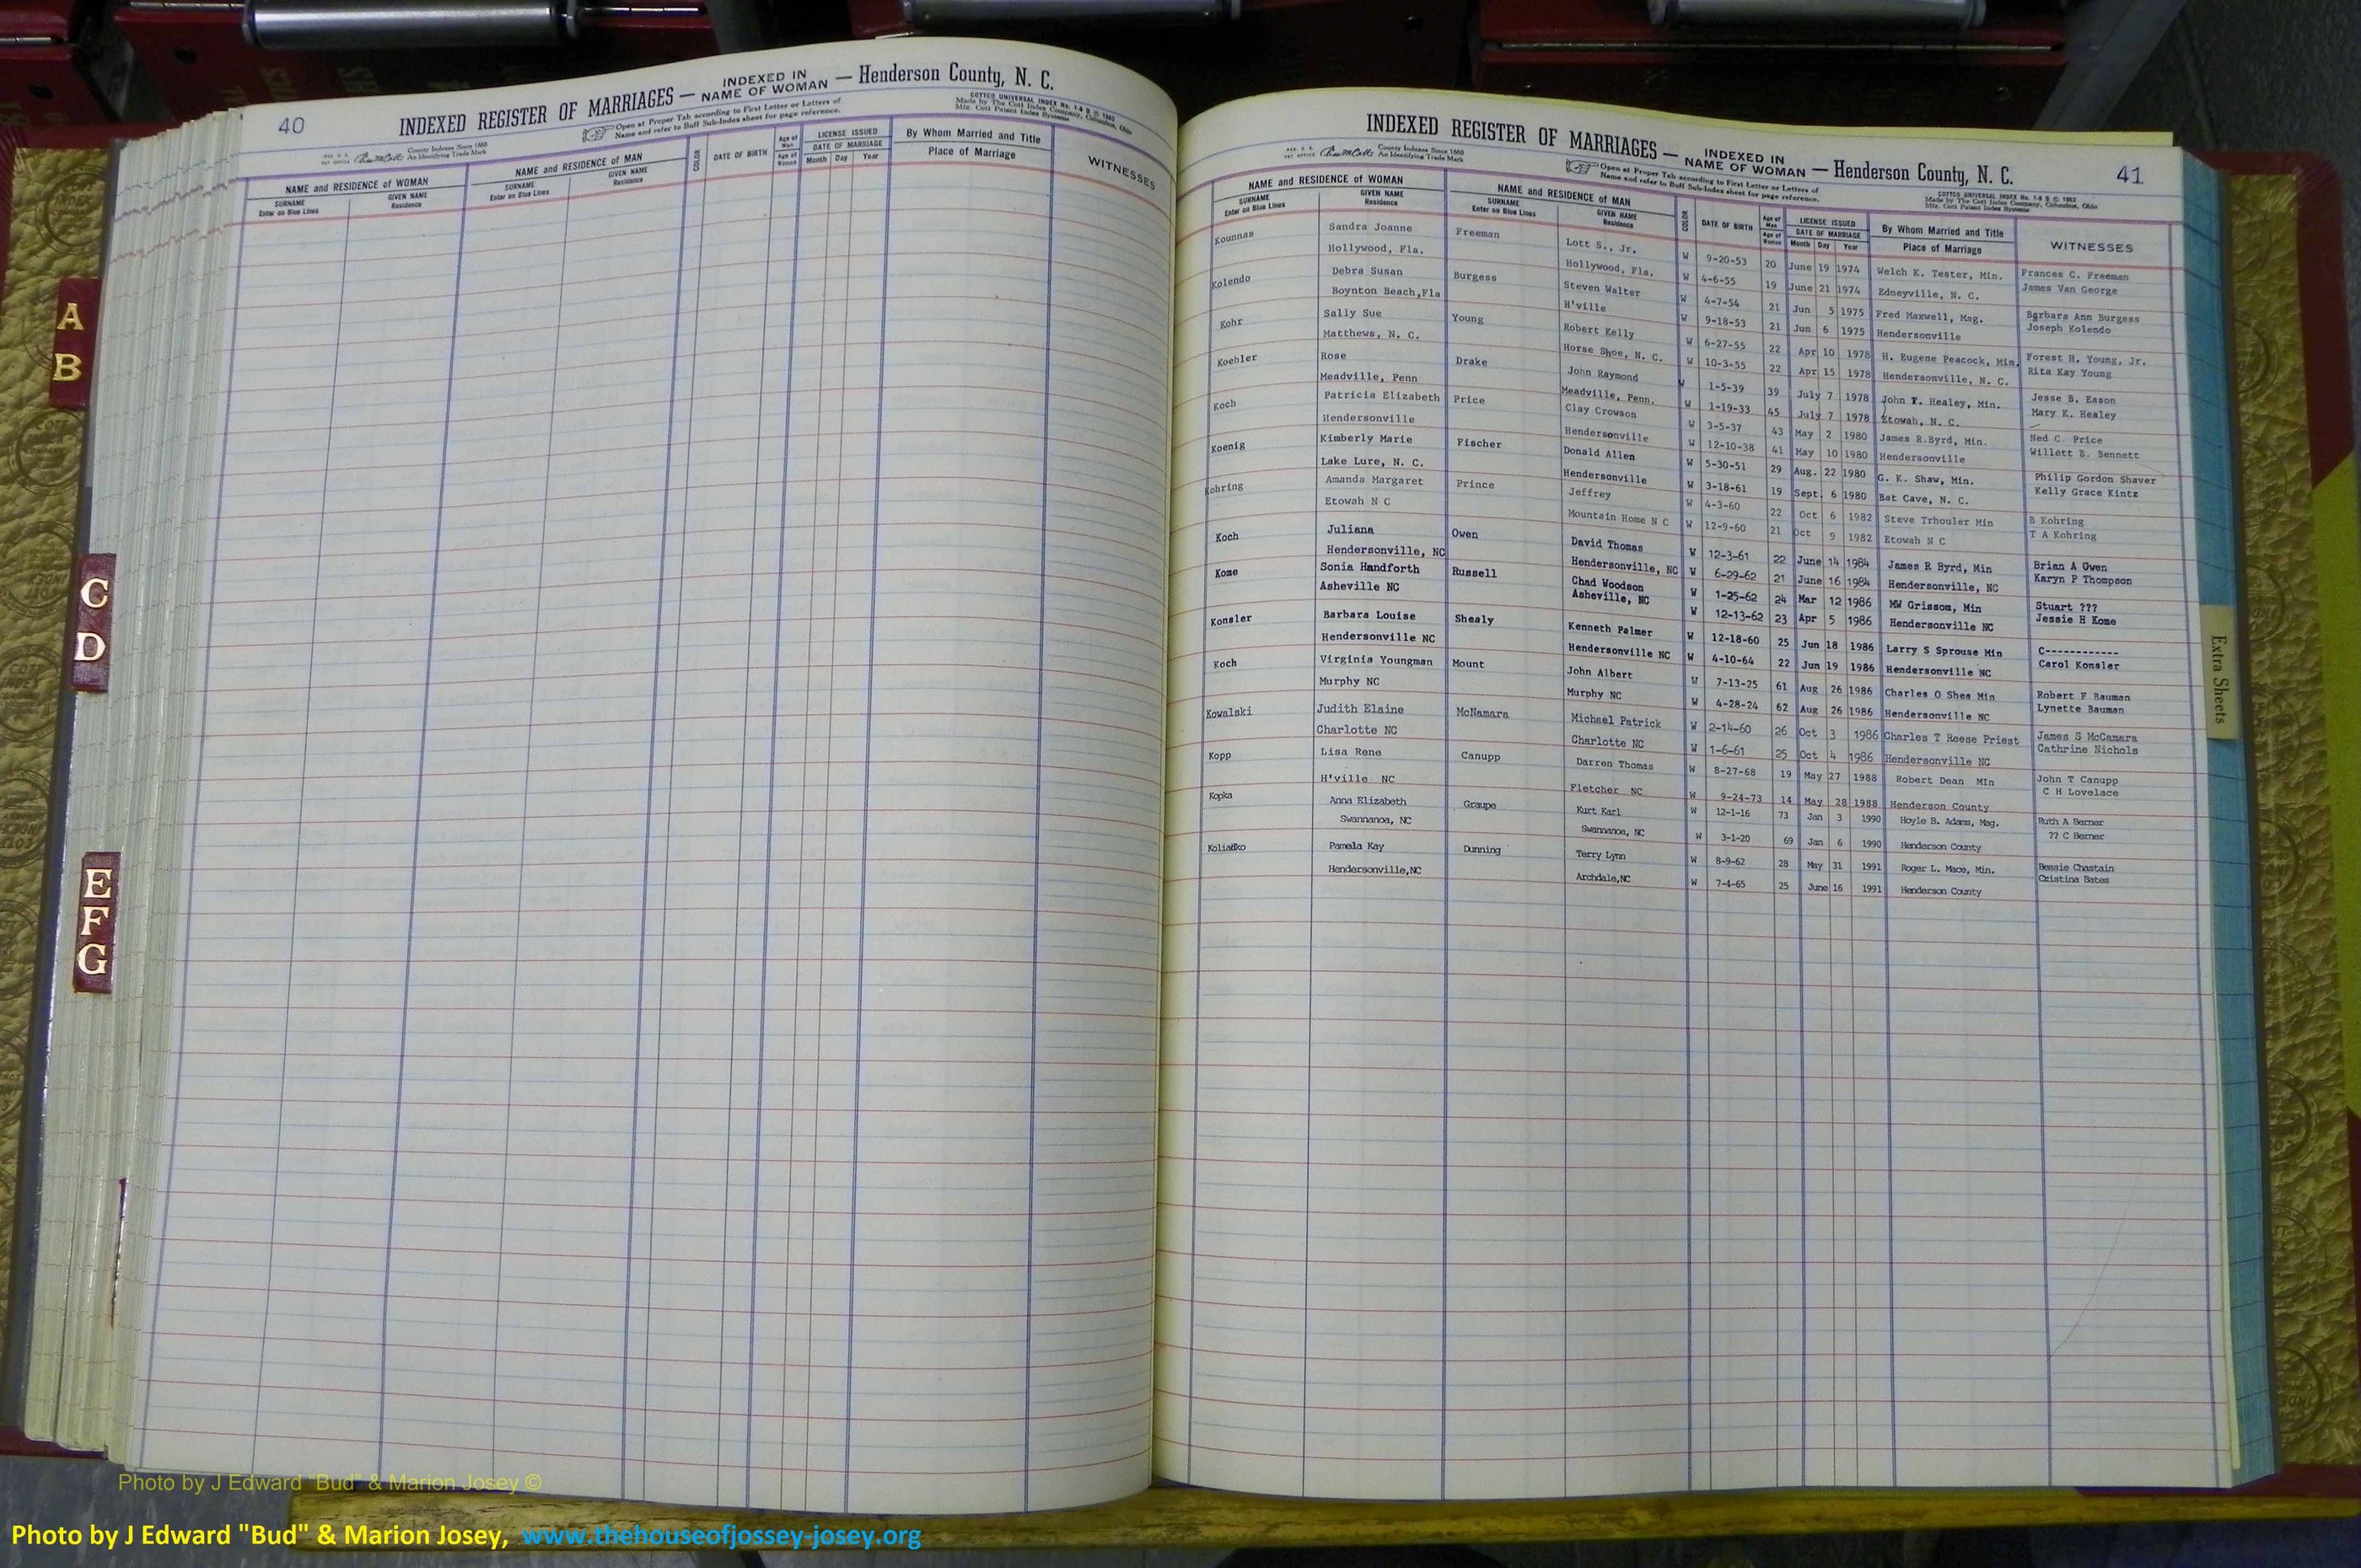 A
B
C
D
E
F
G
40
INDEXED REGISTER OF MARRIAGES — INDEXED IN NAME OF WOMAN — Henderson County, N. C.
Open at Proper Tab according to First Letter or Letters of
Name and refer to Buff Sub-Index sheet for page reference.
COTTCO UNIVERSAL INDEX No. 1-8 B © 1962
Made by The Cott Index Company, Columbus, Ohio
Mfr. Cott Patent Index Systems
County Indexes Since 1888
An Identifying Trade Mark
NAME and RESIDENCE of WOMAN NAME and RESIDENCE of MAN COLOR DATE OF BIRTH Age of Man LICENSE ISSUED By Whom Married and Title WITNESSES
SURNAME GIVEN NAME SURNAME GIVEN NAME Age of Woman DATE OF MARRIAGE Place of Marriage
Enter on Blue Lines Residence Enter on Blue Lines Residence Month Day Year
INDEXED REGISTER OF MARRIAGES — INDEXED IN NAME OF WOMAN — Henderson County, N. C. 41
County Indexes Since 1888
An Identifying Trade Mark
Open at Proper Tab according to First Letter or Letters of
Name and refer to Buff Sub-Index sheet for page reference.
COTTCO UNIVERSAL INDEX No. 1-8 B © 1962
Made by The Cott Index Company, Columbus, Ohio
Mfr. Cott Patent Index Systems
NAME and RESIDENCE of WOMAN NAME and RESIDENCE of MAN COLOR DATE OF BIRTH Age of Man LICENSE ISSUED By Whom Married and Title WITNESSES
SURNAME GIVEN NAME SURNAME GIVEN NAME Age of Woman DATE OF MARRIAGE Place of Marriage
Enter on Blue Lines Residence Enter on Blue Lines Residence Month Day Year
Kounnas Sandra Joanne Freeman Lott S., Jr. W 9-20-53 20 June 19 1974 Welch K. Tester, Min. Frances C. Freeman
Hollywood, Fla. Hollywood, Fla. W 4-6-55 19 June 21 1974 Edneyville, N. C. James Van George
Kolendo Debra Susan Burgess Steven Walter W 4-7-54 21 Jun 5 1975 Fred Maxwell, Mag. Barbara Ann Burgess
Boynton Beach,Fla H'ville W 9-18-53 21 Jun 6 1975 Hendersonville Joseph Kolendo
Kohr Sally Sue Young Robert Kelly W 6-27-55 22 Apr 10 1978 H. Eugene Peacock, Min. Forest H. Young, Jr.
Matthews, N. C. Horse Shoe, N. C. W 10-3-55 22 Apr 15 1978 Hendersonville, N. C. Rita Kay Young
Koehler Rose Drake John Raymond W 1-5-39 39 July 7 1978 John T. Healey, Min. Jesse B. Eason
Meadville, Penn Meadville, Penn. W 1-19-33 45 July 7 1978 Etowah, N. C. Mary K. Healey
Koch Patricia Elizabeth Price Clay Crowson W 3-5-37 43 May 2 1980 James R.Byrd, Min. Ned C. Price
Hendersonville Hendersonville W 12-10-38 41 May 10 1980 Hendersonville Willett B. Bennett
Koenig Kimberly Marie Fischer Donald Allen W 5-30-51 29 Aug. 22 1980 G. K. Shaw, Min. Philip Gordon Shaver
Lake Lure, N. C. Hendersonville W 3-18-61 19 Sept. 6 1980 Bat Cave, N. C. Kelly Grace Kintz
Kohring Amanda Margaret Prince Jeffrey W 4-3-60 22 Oct 6 1982 Steve Trhouler Min B Kohring
Etowah N C Mountain Home N C W 12-9-60 21 Oct 9 1982 Etowah N C T A Kohring
Koch Juliana Owen David Thomas W 12-3-61 22 June 14 1984 James R Byrd, Min Brian A Owen
Hendersonville, NC Hendersonville, NC W 6-29-62 21 June 16 1984 Hendersonville, NC Karyn P Thompson
Kome Sonia Handforth Russell Chad Woodson W 1-25-62 24 Mar 12 1986 MW Grissom, Min Stuart ???
Asheville NC Asheville, NC W 12-13-62 23 Apr 5 1986 Hendersonville NC Jessie H Kome
Konsler Barbara Louise Shealy Kenneth Palmer W 12-18-60 25 Jun 18 1986 Larry S Sprouse Min C------------
Hendersonville NC Hendersonville NC W 4-10-64 22 Jun 19 1986 Hendersonville NC Carol Konsler
Koch Virginia Youngman Mount John Albert W 7-13-25 61 Aug 26 1986 Charles O Shea Min Robert F Bauman
Murphy NC Murphy NC W 4-28-24 62 Aug 26 1986 Hendersonville NC Lynette Bauman
Kowalski Judith Elaine McNamara Michael Patrick W 2-14-60 26 Oct 3 1986 Charles T Reese Priest James S McCamara
Charlotte NC Charlotte NC W 1-6-61 25 Oct 4 1986 Hendersonville NC Cathrine Nichols
Kopp Lisa Rene Canupp Darren Thomas W 8-27-68 19 May 27 1988 Robert Dean MIn John T Canupp
H'ville NC Fletcher NC W 9-24-73 14 May 28 1988 Henderson County C H Lovelace
Kopka Anna Elizabeth Graupe Kurt Karl W 12-1-16 73 Jan 3 1990 Hoyle B. Adams, Mag. Ruth A Berner
Swannanoa, NC Swannanoa, NC W 3-1-20 69 Jan 6 1990 Henderson County ?? C Berner
Pamela Kay Dunning Terry Lynn W 8-9-62 28 May 31 1991 Roger L. Mace, Min. Bessie Chastain
Hendersonville,NC Archdale,NC W 7-4-65 25 June 16 1991 Henderson County Cristina Bates
Extra Sheets
Photo by J Edward "Bud" & Marion Josey ©
Photo by J Edward "Bud" & Marion Josey, www.thehouseofjossey-josey.org